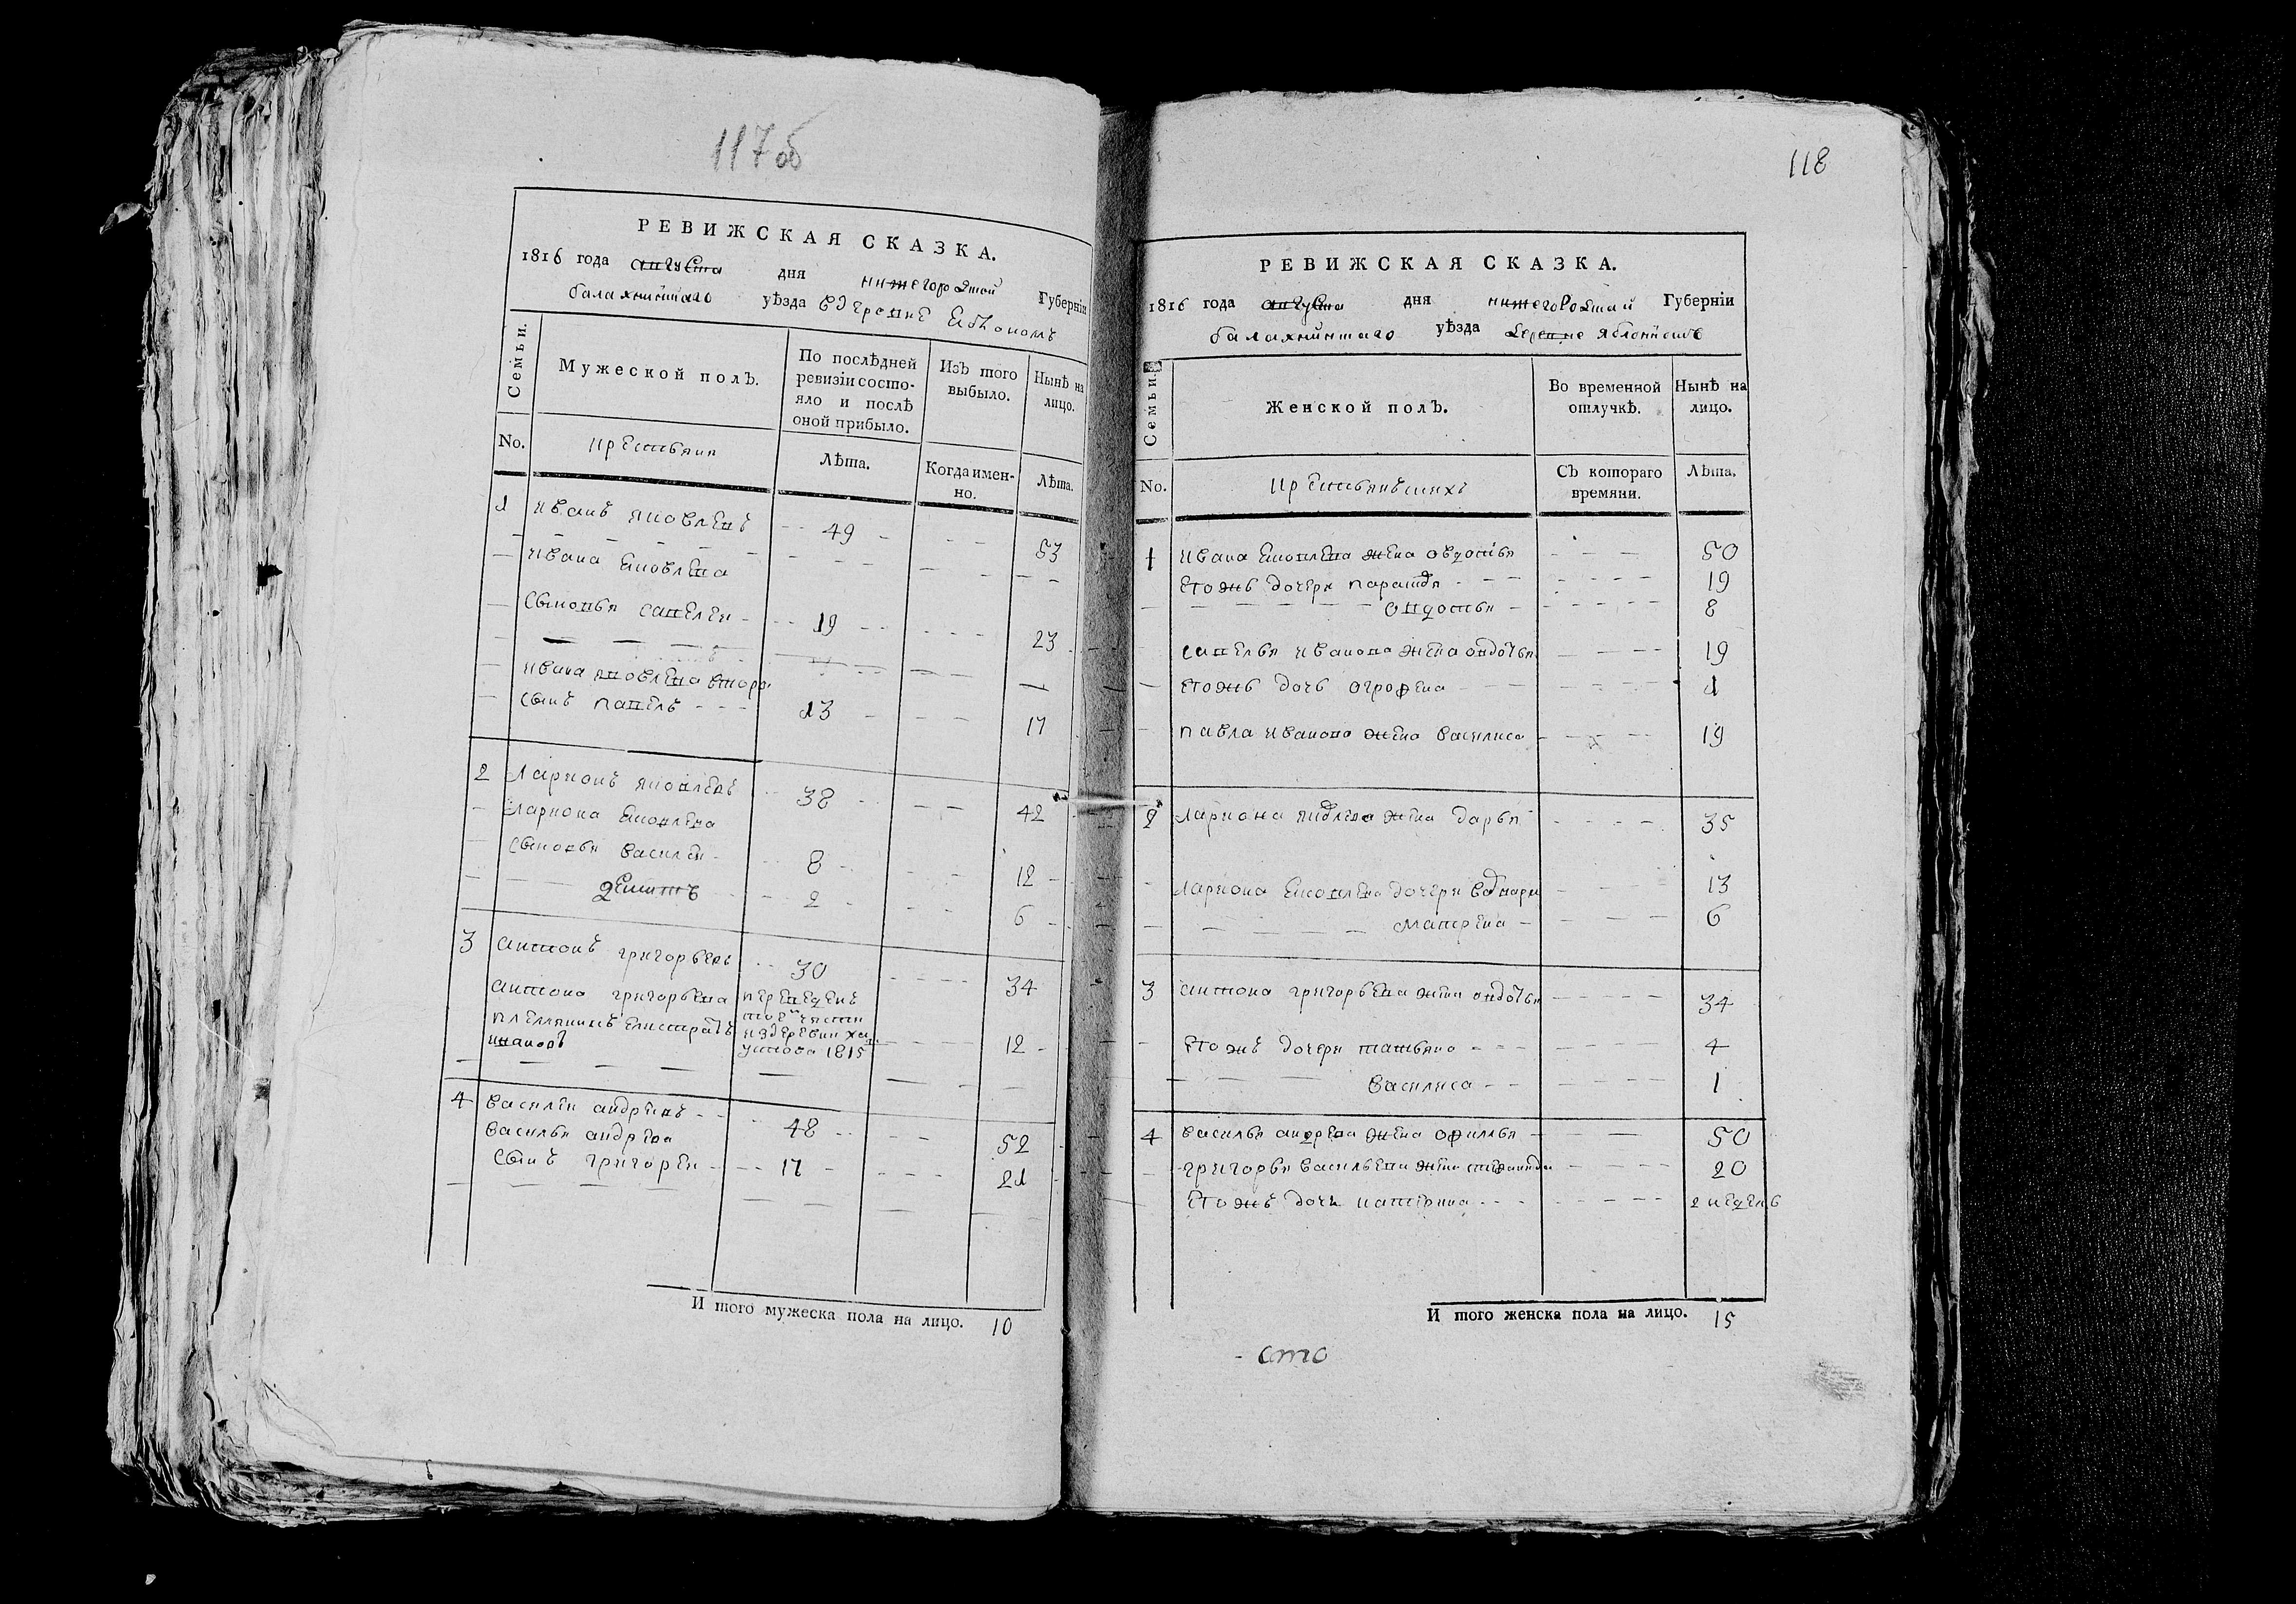 117 об
РЕВИЖСКАЯ СКАЗКА.
1816 года августа дня нижегородской Губерніи
балахнинскаго уѣзда въ деревне
Семьи.
Мужеской полъ.
По послѣдней ревизіи состояло и послѣ оной прибыло.
Изъ того выбыло.
Нынѣ на лицо.
No.
крестьяня
Лѣта.
Когда именно.
Лѣта.
1 иванъ яковлевъ 49 53
ивана яковлева
сыновья савелеи 19 23
ивана яковлева втораи
сынъ павелъ 13 17
2 ларионъ яковлевъ 38 42
лариона яковлева
сыновья василеи 8 12
2 6
3 антонъ григорьевъ 30 34
антона григорьева переведенъ
племянникъ елистратъ тоеи части
ивановъ из деревни
1815 12
4 василеи андреивъ 48 52
василья андрева
сынъ григореи 17 21
И того мужеска пола на лицо. 10
118
РЕВИЖСКАЯ СКАЗКА.
1816 года августа дня нижегородской Губерніи
балахнинскаго уѣзда деревне яблонном
Семьи.
Женской полъ.
Во временной отлучкѣ.
Нынѣ на лицо.
No.
крестьянскихъ
Съ котораго времяни.
Лѣта.
1 ивана яковлева жена овдотья 50
его жъ дочери парасковья 19
овдотья 8
савелья иванова жена овдотья 19
его жъ дочь огрофена 1
павла иванова жена василиса 19
2 лариона яковлева жена дарья 35
лариона яковлева дочери 13
матрена 6
3 антона григорьева жена овдотья 34
его жъ дочери татьяна 4
василиса 1
4 василья андрева жена офимья 50
григорья васильева жена степанида 20
его жъ дочь катерина 2 недель
И того женска пола на лицо. 15
сто